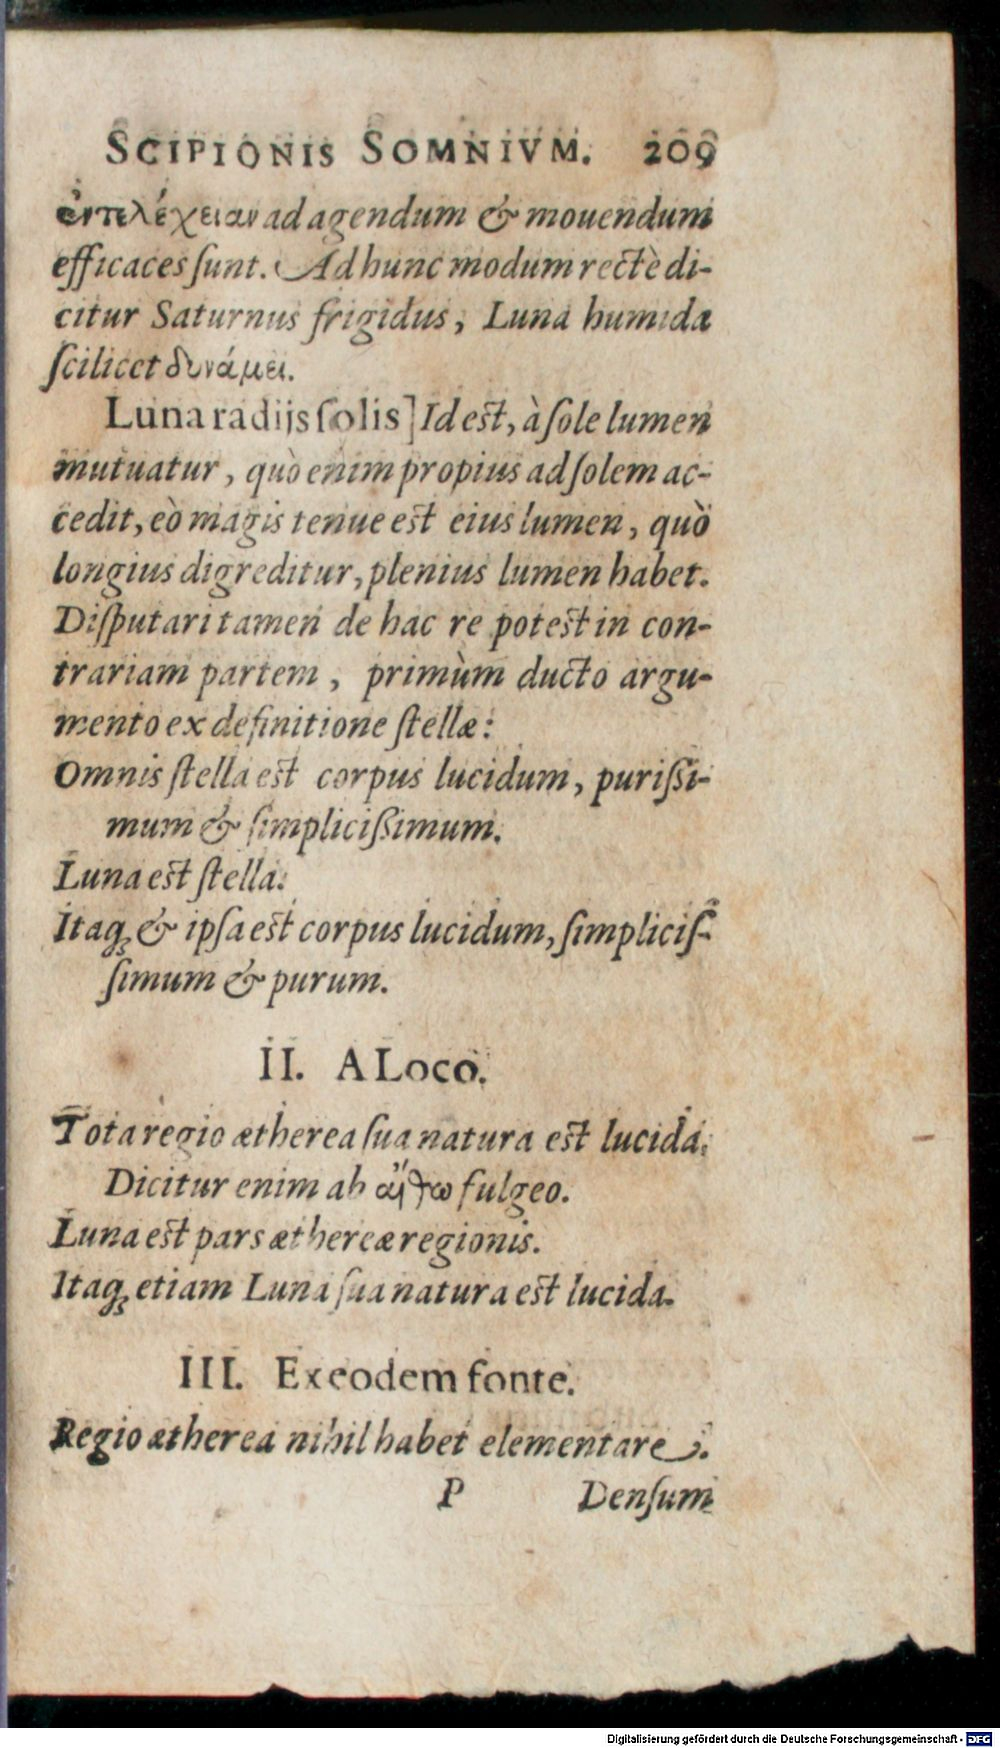 SCIPIONIS SOMNIVM. 209
ἐντελέχειαν ad agendum & mouendum
efficaces ſunt. Ad hunc modum rectè di-
citur Saturnus frigidus, Luna humida
ſcilicet δυνάμει.
Luna radijs ſolis] Id eſt, à ſole lumen
mutuatur, quò enim propius ad ſolem ac-
cedit, eò magis tenue eſt eius lumen, quò
longius digreditur, plenius lumen habet.
Diſputari tamen de hac re poteſt in con-
trariam partem, primùm ducto argu-
mento ex definitione ſtellæ:
Omnis ſtella eſt corpus lucidum, puriſſi-
mum & ſimpliciſſimum.
Luna eſt ſtella.
Itaq; & ipſa eſt corpus lucidum, ſimpliciſ-
ſimum & purum.
II. A LOCO.
Tota regio ætherea ſua natura eſt lucida.
Dicitur enim ab αἴθω fulgeo.
Luna eſt pars æthereæ regionis.
Itaq; etiam Luna ſua natura eſt lucida.
III. Ex eodem fonte.
Regio ætherea nihil habet elementare.
P Denſum
Digitalisierung gefördert durch die Deutsche Forschungsgemeinschaft - DFG